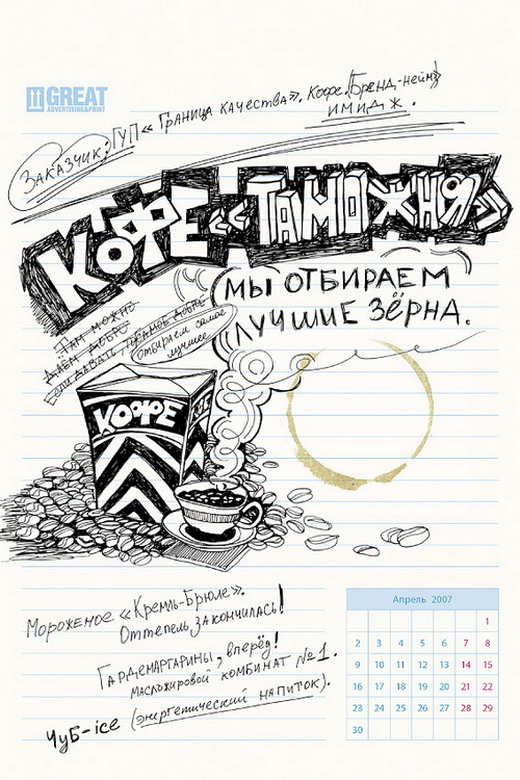 GREAT
ADVERTISING&PRINT
Заказчик: ГУП «Граница качества». Кофе. (Бренд-нейм)
имидж.
КОФЕ «ТАМОЖНЯ»
МЫ ОТБИРАЕМ
ЛУЧШИЕ ЗЁРНА.
Там можно
Даём добро
Если давать, то самое доброе
отбираем самое
лучшее
КОФЕ
Мороженое «Кремль-Брюле».
Оттепель закончилась!
Гардемаргарины, вперёд!
Масложировой комбинат №1.
ЧуБ-ice (энергетический напиток).
Апрель 2007
1
2 3 4 5 6 7 8
9 10 11 12 13 14 15
16 17 18 19 20 21 22
23 24 25 26 27 28 29
30